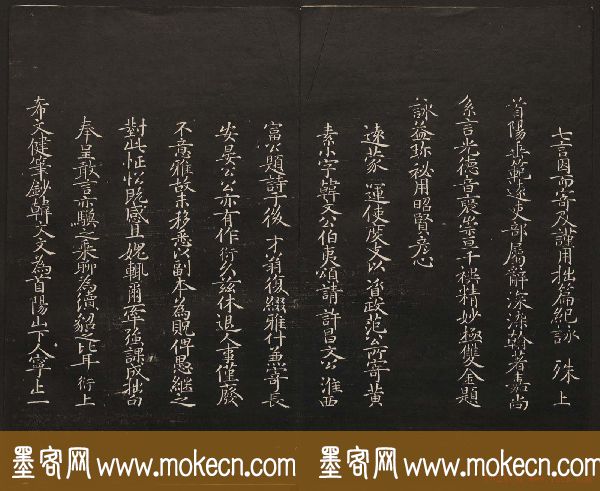 七言因而寄及謹用拙篇紀詠 殊上
首陽垂範遠吏部屬辭深染翰著嘉尚
系言光德音褒崇亘千祀精妙極雙金題
詠益珎祕用昭賢彥心
遠蒙 運使度支以 資政范公所寄黃
素小字韓文公伯夷頌請 許昌文公 淮西
富公題詩于後 才翁復綴雅什兼寄長
安晏公公亦有作衍久茲休退人事僅廢
不意雅故未移悉以副本為貺俾愚繼之
對此怔忪既感且媿輒爾牽強課成拙句
奉呈敢言亦驥之乘聊為續貂之比耳 衍上
希文健筆鈔韓文文為首陽山下人寧止一
墨客网 www.mokecn.com 墨客网 www.mokecn.com